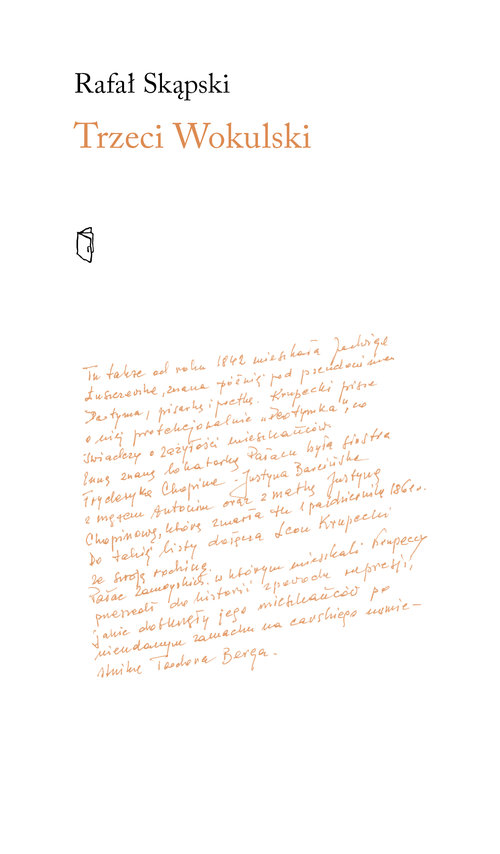 Rafał Skąpski
Trzeci Wokulski
Tu także od roku 1842 mieszkała Jadwiga
Łuszczewska, znana później pod pseudonimem
Deotyma, pisarka i poetka. Krupecki pisze
o niej protekcjonalnie „Deotymka", co
świadczy o zażyłości mieszkańców.
Inną znaną lokatorką Pałacu była siostra
Fryderyka Chopina - Justyna Barcińska
z mężem Antonim oraz z matką Justyną
Chopinową, która zmarła tu 1 października 1861 r.
Do takiej listy dołącza Leon Krupecki
ze swoją rodziną.
Pałac Zamoyskich w którym mieszkali Krupeccy
przeszedł do historii z powodu represji,
jakie dotknęły jego mieszkańców po
nieudanym zamachu na carskiego namie-
stnika Teodora Berga.